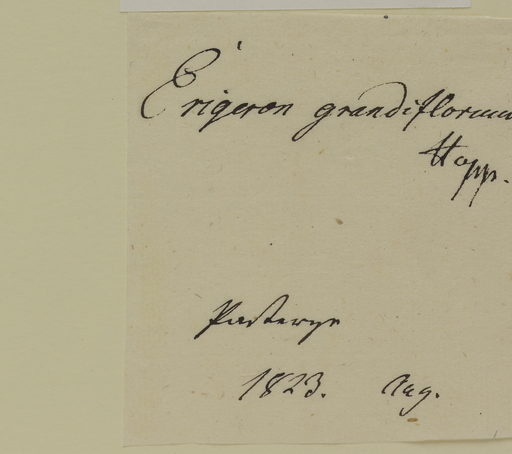 Erigeron grandiflorum
Hopp.
Pasterze
1823. Aug.